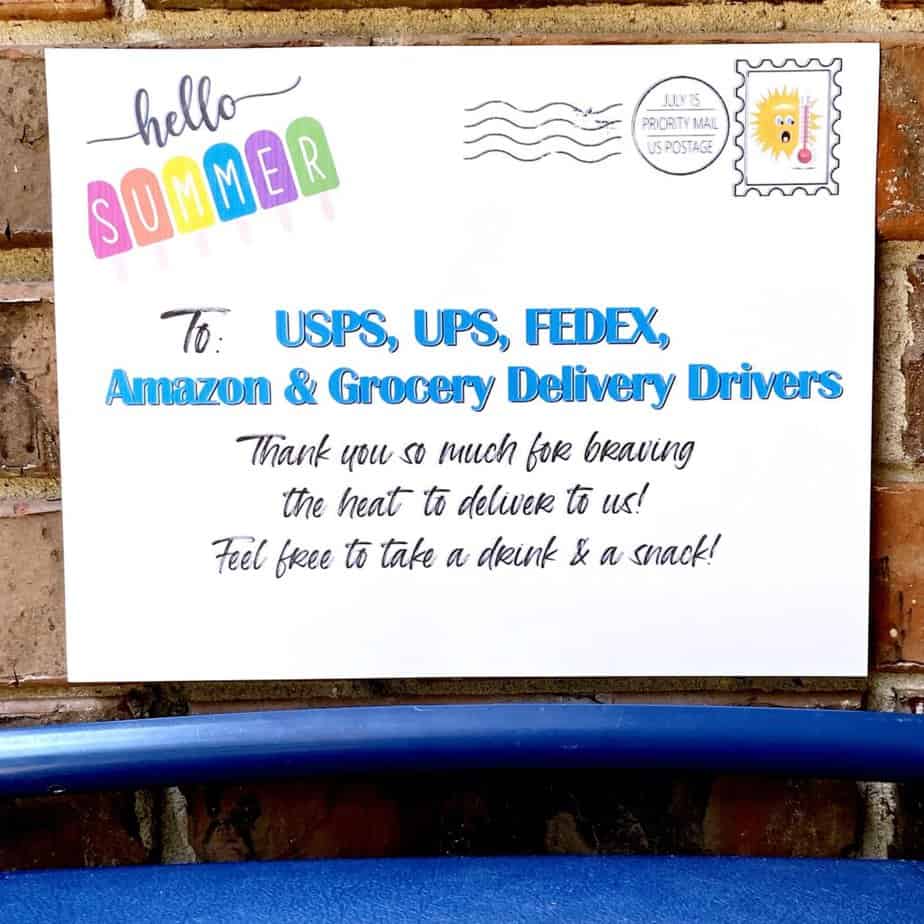 hello
SUMMER
JULY 15
PRIORITY MAIL
US POSTAGE
To: USPS, UPS, FEDEX,
Amazon & Grocery Delivery Drivers
Thank you so much for braving
the heat to deliver to us!
Feel free to take a drink & a snack!